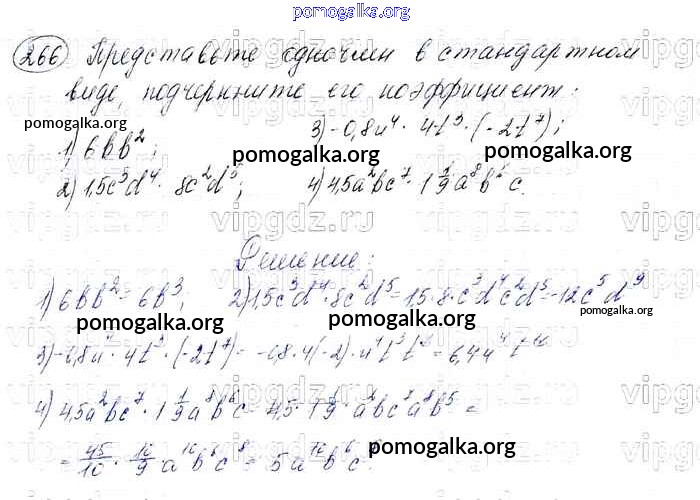 pomogalka.org
266 Представьте одночлен в стандартном
виде, подчеркните его коэффициент:
pomogalka.org
1) 6bb²; 3) -0,8u⁴ · 4t³ · (-2t⁷);
pomogalka.org pomogalka.org
2) 1,5c³d⁴ · 8c²d⁵; 4) 4,5a²bc⁷ · 1 1/9 a⁸b⁵c.
Решение:
1) 6bb² = 6b³; 2) 1,5c³d⁴ · 8c²d⁵ = 1,5 · 8 · c³d⁴c²d⁵ = 12c⁵d⁹
pomogalka.org pomogalka.org pomogalka.org
3) -0,8u⁴ · 4t³ · (-2t⁷) = -0,8 · 4(-2) · u⁴t³t⁷ = 6,4u⁴t¹⁰
pomogalka.org
4) 4,5a²bc⁷ · 1 1/9 a⁸b⁵c = 4,5 · 1 1/9 · a²bc⁷a⁸b⁵ =
= 45/10 · 10/9 a¹⁰b⁶c⁸ = 5a¹⁰b⁶c⁸.
pomogalka.org
vipgdz.ru